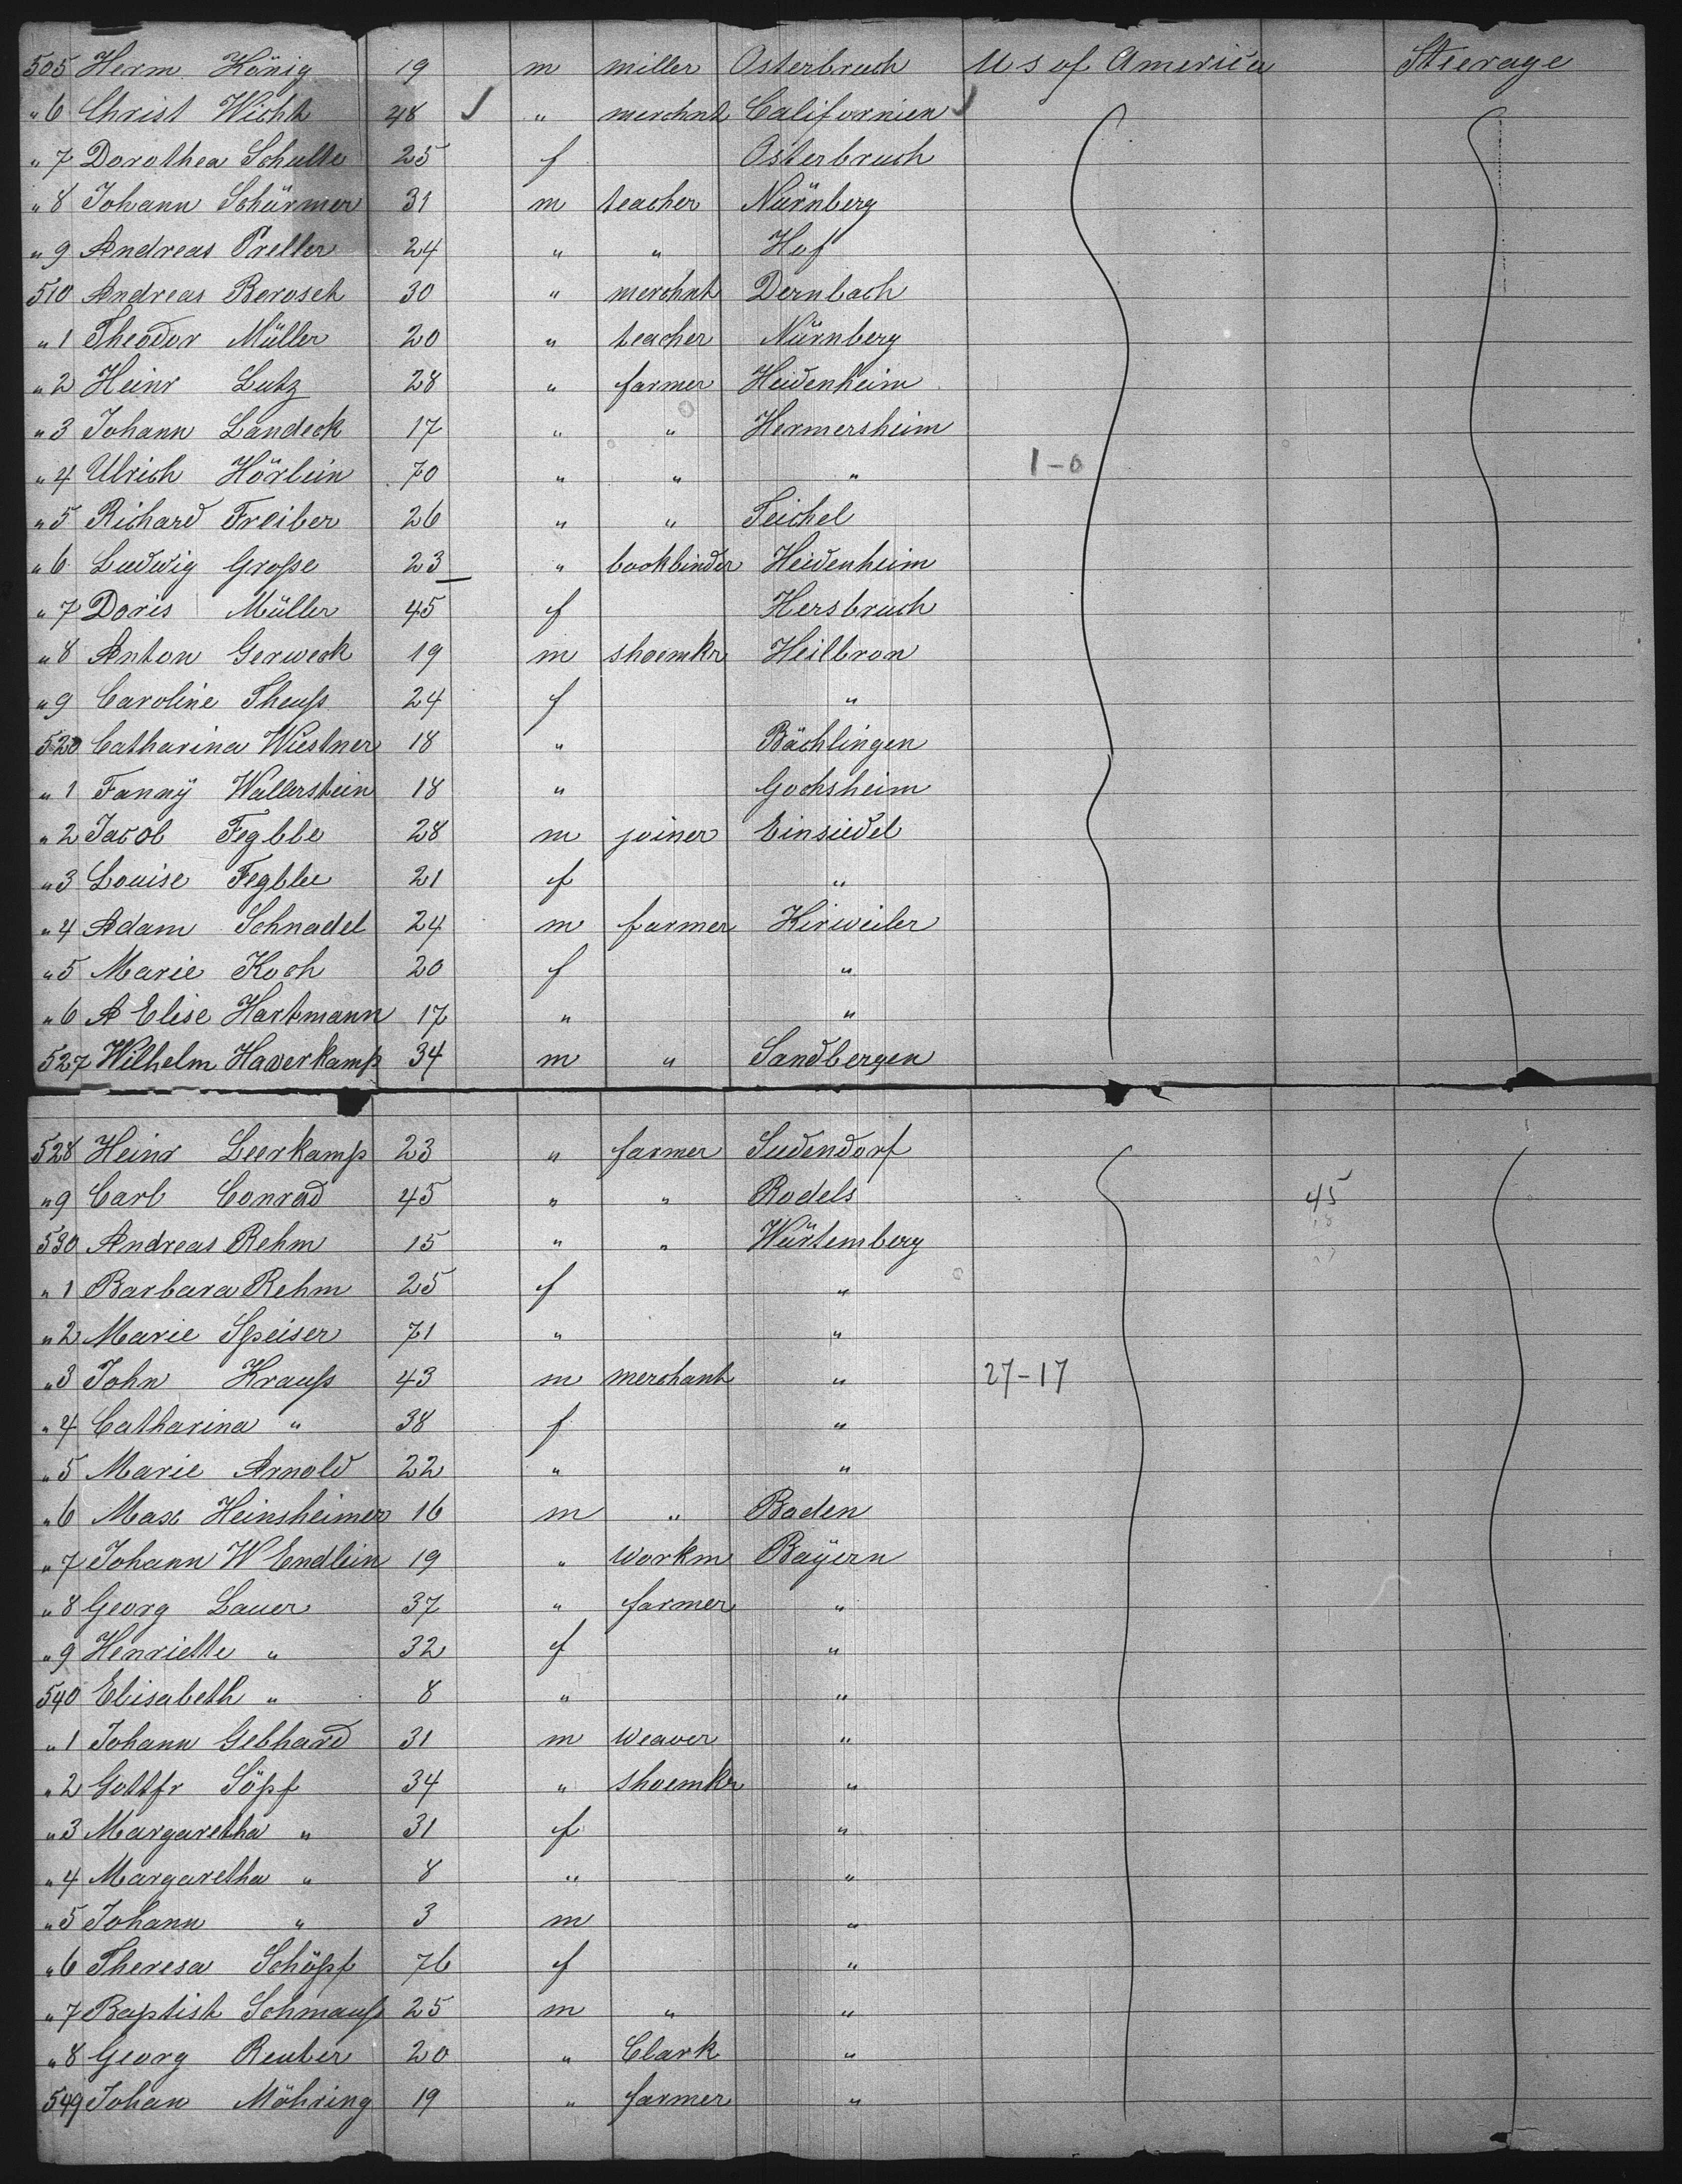 505 Herm König 19 m miller Osterbruch U S of America Steerage
" 6 Christ Wicht 48 " merchnt Californien
" 7 Dorothea Schulte 25 f Osterbruch
" 8 Johann Schürmer 31 m teacher Nürnberg
" 9 Andreas Preller 24 " " Hof
510 Andreas Borosch 30 " merchnt Dernbach
" 1 Theodor Müller 20 " teacher Nürnberg
" 2 Heinr Lutz 28 " farmer Heidenheim
" 3 Johann Landeck 17 " " Hermersheim
" 4 Ulrich Hörlein 70 " " " 1-0
" 5 Richard Freiber 26 " " Teichel
" 6 Ludwig Große 23 " bookbinder Heidenheim
" 7 Doris Müller 45 f Hersbruch
" 8 Anton Gerweck 19 m shoemkr Heilbron
" 9 Caroline Theuß 24 f "
520 Catharina Wiestner 18 " Bächlingen
" 1 Fanny Wallerstein 18 " Gochsheim
" 2 Jacob Fegble 28 m joiner Einsiedel
" 3 Louise Fegble 21 f "
" 4 Adam Schnadel 24 m farmer Kirweiler
" 5 Marie Koch 20 f "
" 6 A Elise Hartmann 17 " "
527 Wilhelm Haverkamp 34 m " Sandbergen
528 Heinr Leerkamp 23 " farmer Sudendorf
" 9 Carl Conrad 45 " " Rodels 45
530 Andreas Rehm 15 " " Würtemberg
" 1 Barbara Rehm 25 f "
" 2 Marie Speiser 71 " "
" 3 John Krauß 43 m merchant " 27-17
" 4 Catharina " 38 f "
" 5 Marie Arnold 22 " "
" 6 Max Heinsheimer 16 m " Baden
" 7 Johann W Endlein 19 " workm Bayern
" 8 Georg Lauer 37 " farmer "
" 9 Henriette " 32 f "
540 Elisabeth " 8 " "
" 1 Johann Gebhard 31 m weaver "
" 2 Gottfr Söpf 34 " shoemkr "
" 3 Margaretha " 31 f "
" 4 Margaretha " 8 " "
" 5 Johann " 3 m "
" 6 Theresa Schöpf 76 f "
" 7 Baptist Schmauß 25 m " "
" 8 Georg Reuber 20 " Clark "
549 Johan Möhring 19 " farmer "